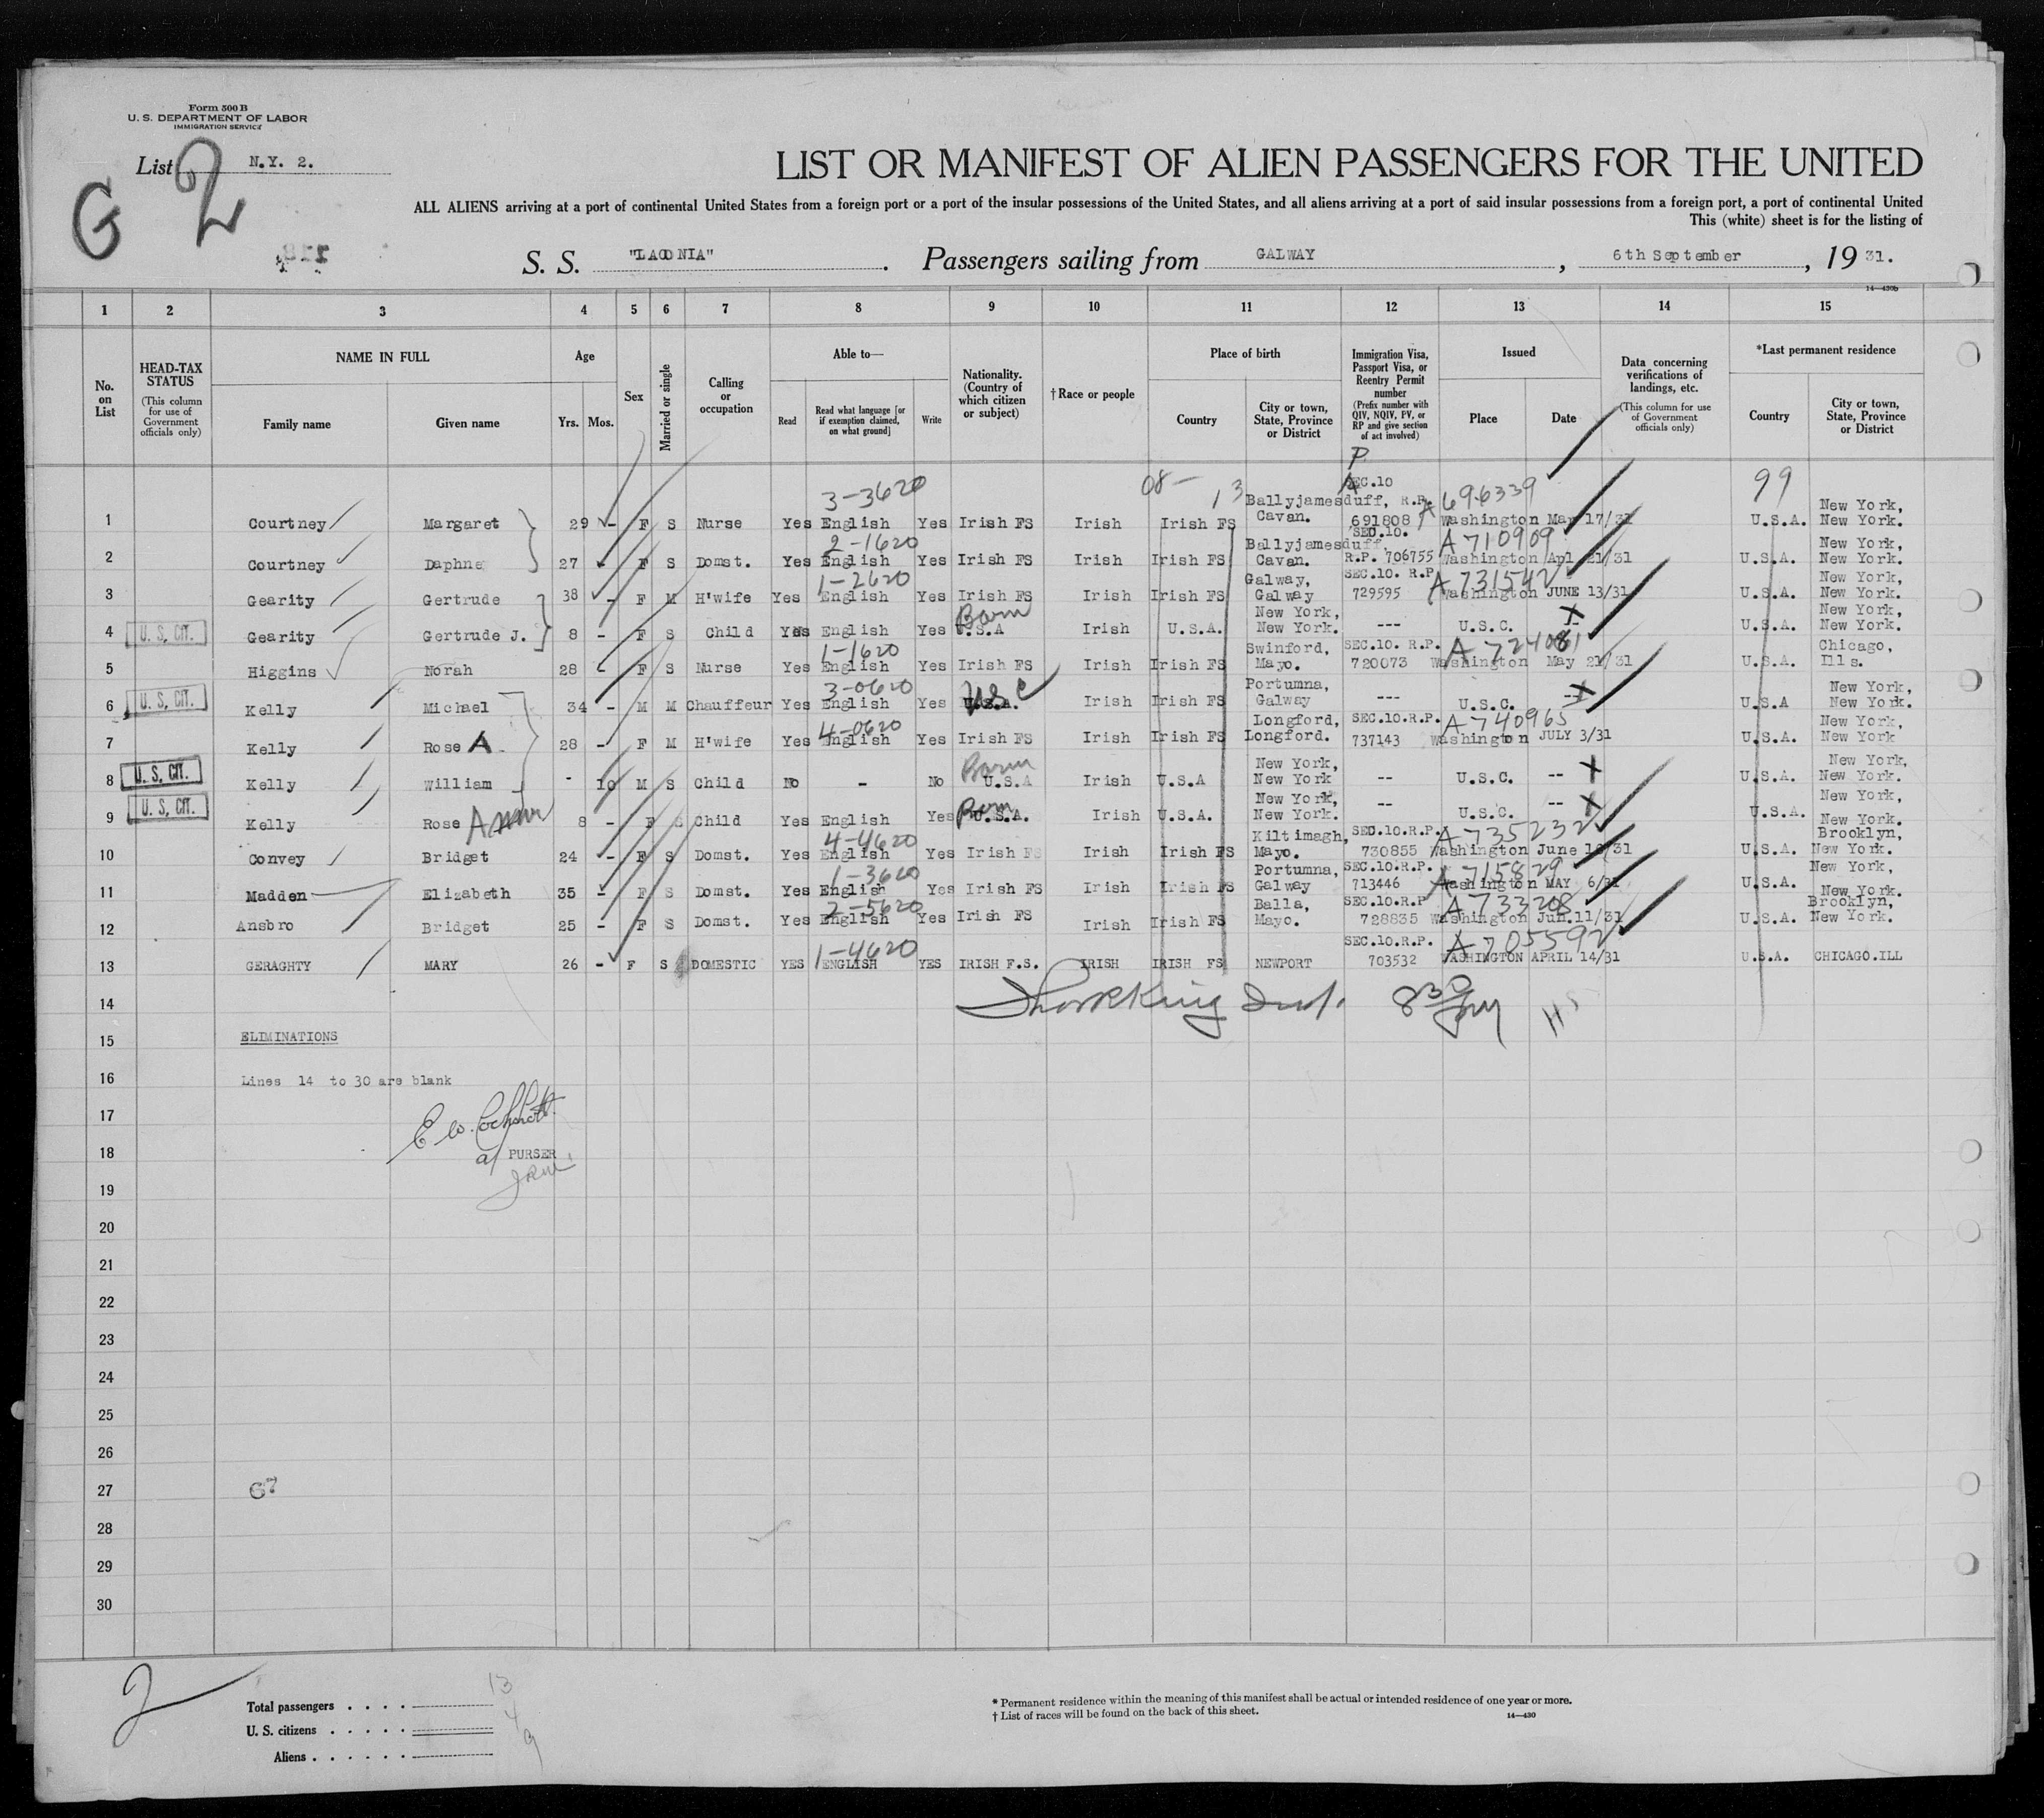 Form 500 B
U. S. DEPARTMENT OF LABOR
IMMIGRATION SERVICE
List N.Y. 2.
G 2
LIST OR MANIFEST OF ALIEN PASSENGERS FOR THE UNITED
ALL ALIENS arriving at a port of continental United States from a foreign port or a port of the insular possessions of the United States, and all aliens arriving at a port of said insular possessions from a foreign port, a port of continental United
This (white) sheet is for the listing of
S. S. "LACONIA". Passengers sailing from GALWAY, 6th September, 19 31.
14—430b
1 2 3 4 5 6 7 8 9 10 11 12 13 14 15
No. on List
HEAD-TAX STATUS (This column for use of Government officials only)
NAME IN FULL Family name Given name
Age Yrs. Mos.
Sex
Married or single
Calling or occupation
Able to— Read Read what language [or if exemption claimed, on what ground] Write
Nationality. (Country of which citizen or subject)
† Race or people
Place of birth Country City or town, State, Province or District
Immigration Visa, Passport Visa, or Reentry Permit number (Prefix number with QIV, NQIV, PV, or RP and give section of act involved)
Issued Place Date
Data concerning verifications of landings, etc. (This column for use of Government officials only)
*Last permanent residence Country City or town, State, Province or District
P
3-3620 08- 13 SEC.10 A696339 99
1 Courtney Margaret 29 - F S Nurse Yes English Yes Irish FS Irish Irish FS Ballyjamesduff, Cavan. R.P. 691808 Washington Mar 17/31 U.S.A. New York, New York.
2-1620 A710909
2 Courtney Daphne 27 F S Domst. Yes English Yes Irish FS Irish Irish FS Ballyjamesduff, Cavan. SEC.10. R.P. 706755 Washington Apl 21/31 U.S.A. New York, New York.
1-2620 A731542
3 Gearity Gertrude 38 - F M H'wife Yes English Yes Irish FS Irish Irish FS Galway, Galway SEC.10. R.P. 729595 Washington JUNE 13/31 U.S.A. New York, New York.
Born X
4 U.S. CIT. Gearity Gertrude J. 8 - F S Child Yes English Yes U.S.A Irish U.S.A. New York, New York. --- U.S.C. U.S.A. New York, New York.
1-1620 A724081
5 Higgins Norah 28 - F S Nurse Yes English Yes Irish FS Irish Irish FS Swinford, Mayo. SEC.10. R.P. 720073 Washington May 21/31 U.S.A. Chicago, Ills.
3-0620 USC X
6 U.S. CIT. Kelly Michael 34 - M M Chauffeur Yes English Yes U.S.A. Irish Irish FS Portumna, Galway --- U.S.C. -- U.S.A New York, New York.
4-0620 A740965
7 Kelly Rose A. 28 - F M H'wife Yes English Yes Irish FS Irish Irish FS Longford, Longford. SEC.10.R.P. 737143 Washington JULY 3/31 U.S.A. New York, New York
Born X
8 U.S. CIT. Kelly William - 10 M S Child No - No U.S.A Irish U.S.A New York, New York -- U.S.C. -- U.S.A. New York, New York.
Born X
9 U.S. CIT. Kelly Rose 8 - F S Child Yes English Yes U.S.A. Irish U.S.A. New York, New York. -- U.S.C. -- U.S.A. New York, New York.
4-4620 A735232
10 Convey Bridget 24 - F S Domst. Yes English Yes Irish FS Irish Irish FS Kiltimagh, Mayo. SEC.10.R.P. 730855 Washington June U.S.A. Brooklyn, New York.
1-3620 A715829
11 Madden Elizabeth 35 - F S Domst. Yes English Yes Irish FS Irish Irish FS Portumna, Galway SEC.10.R.P. 713446 Washington MAY 6/31 U.S.A. New York, New York.
2-5620 A733208
12 Ansbro Bridget 25 - F S Domst. Yes English Yes Irish FS Irish Irish FS Balla, Mayo. SEC.10.R.P 728835 Washington Jun.11/31 U.S.A. Brooklyn, New York.
1-4620 A705592
13 GERAGHTY MARY 26 - F S DOMESTIC YES ENGLISH YES IRISH F.S. IRISH IRISH FS NEWPORT SEC.10.R.P. 703532 WASHINGTON APRIL 14/31 U.S.A. CHICAGO.ILL
14
15 ELIMINATIONS
16 Lines 14 to 30 are blank
17
18 PURSER
19
20
21
22
23
24
25
26
27 67
28
29
30
2
Total passengers . . . . 13
U. S. citizens . . . . . 4
Aliens . . . . . . 9
* Permanent residence within the meaning of this manifest shall be actual or intended residence of one year or more.
† List of races will be found on the back of this sheet. 14—430